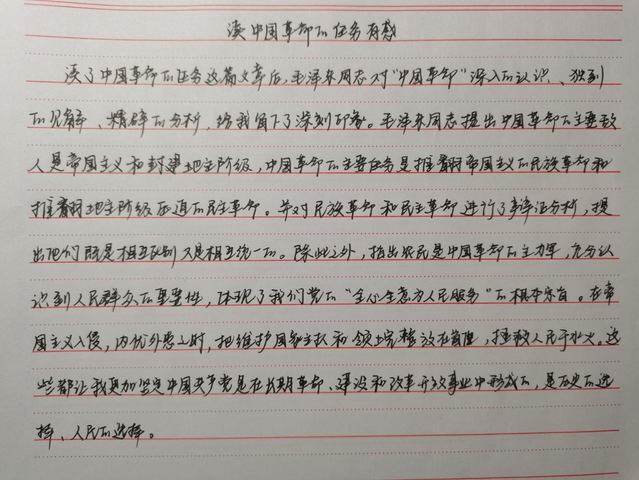 读中国革命的任务有感
读了中国革命的任务这篇文章后，毛泽东同志对“中国革命”深入的认识、独到
的见解、精辟的分析，给我留下了深刻印象。毛泽东同志提出中国革命的主要敌
人是帝国主义和封建地主阶级，中国革命的主要任务是推翻帝国主义的民族革命和
推翻地主阶级压迫的民主革命。并对民族革命和民主革命进行了辩证分析，提
出他们既是相互区别又是相互统一的。除此之外，指出农民是中国革命的主力军，充分认
识到人民群众的重要性，体现了我们党的“全心全意为人民服务”的根本宗旨。在帝
国主义入侵，内忧外患之时，把维护国家主权和领土完整放在首位，拯救人民于水火。这
些都让我更加坚定中国共产党是在长期革命、建设和改革开放事业中形成的，是历史的选
择、人民的选择。